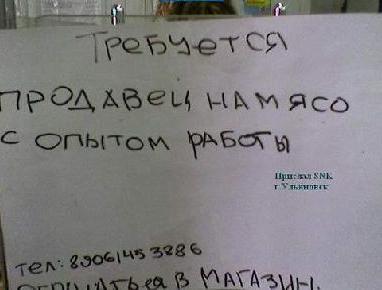 ТРЕБУЕТСЯ
ПРОДАВЕЦ НА МЯСО
С ОПЫТОМ РАБОТЫ
Прислал SNK
г.Ульяновск
тел: 89061453886
ОБРЩАТЬСЯ В МАГАЗИН.